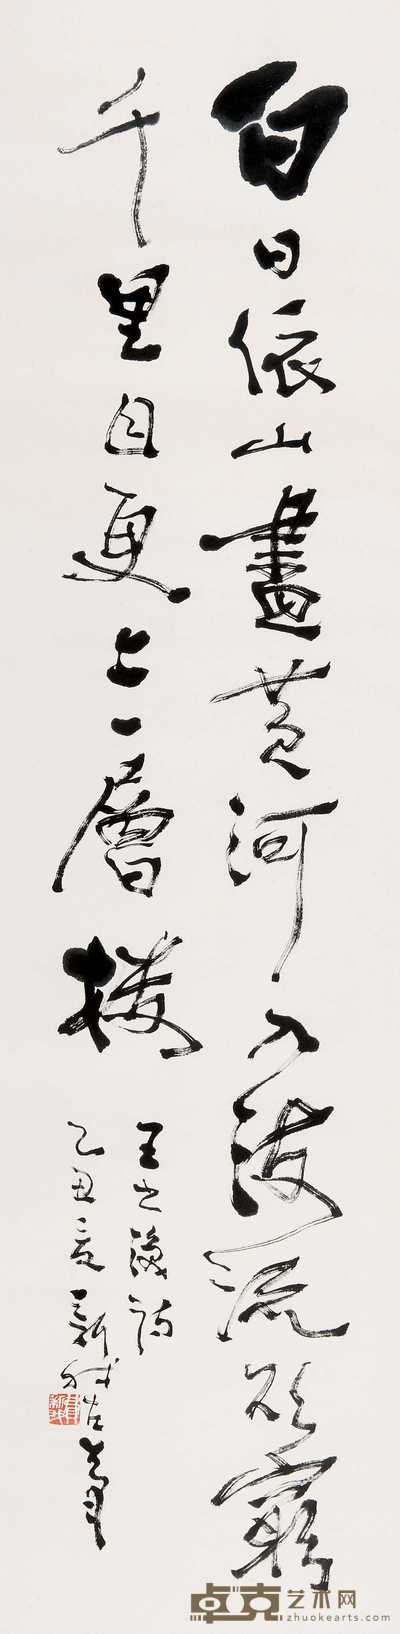 白日依山盡黄河入海流欲窮
千里目更上一層樓
王之渙詩
乙丑夏新
卓克艺术网
zhuokearts.com